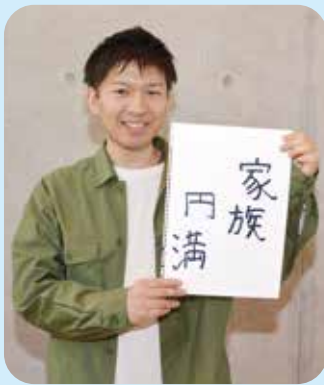 家族
円満